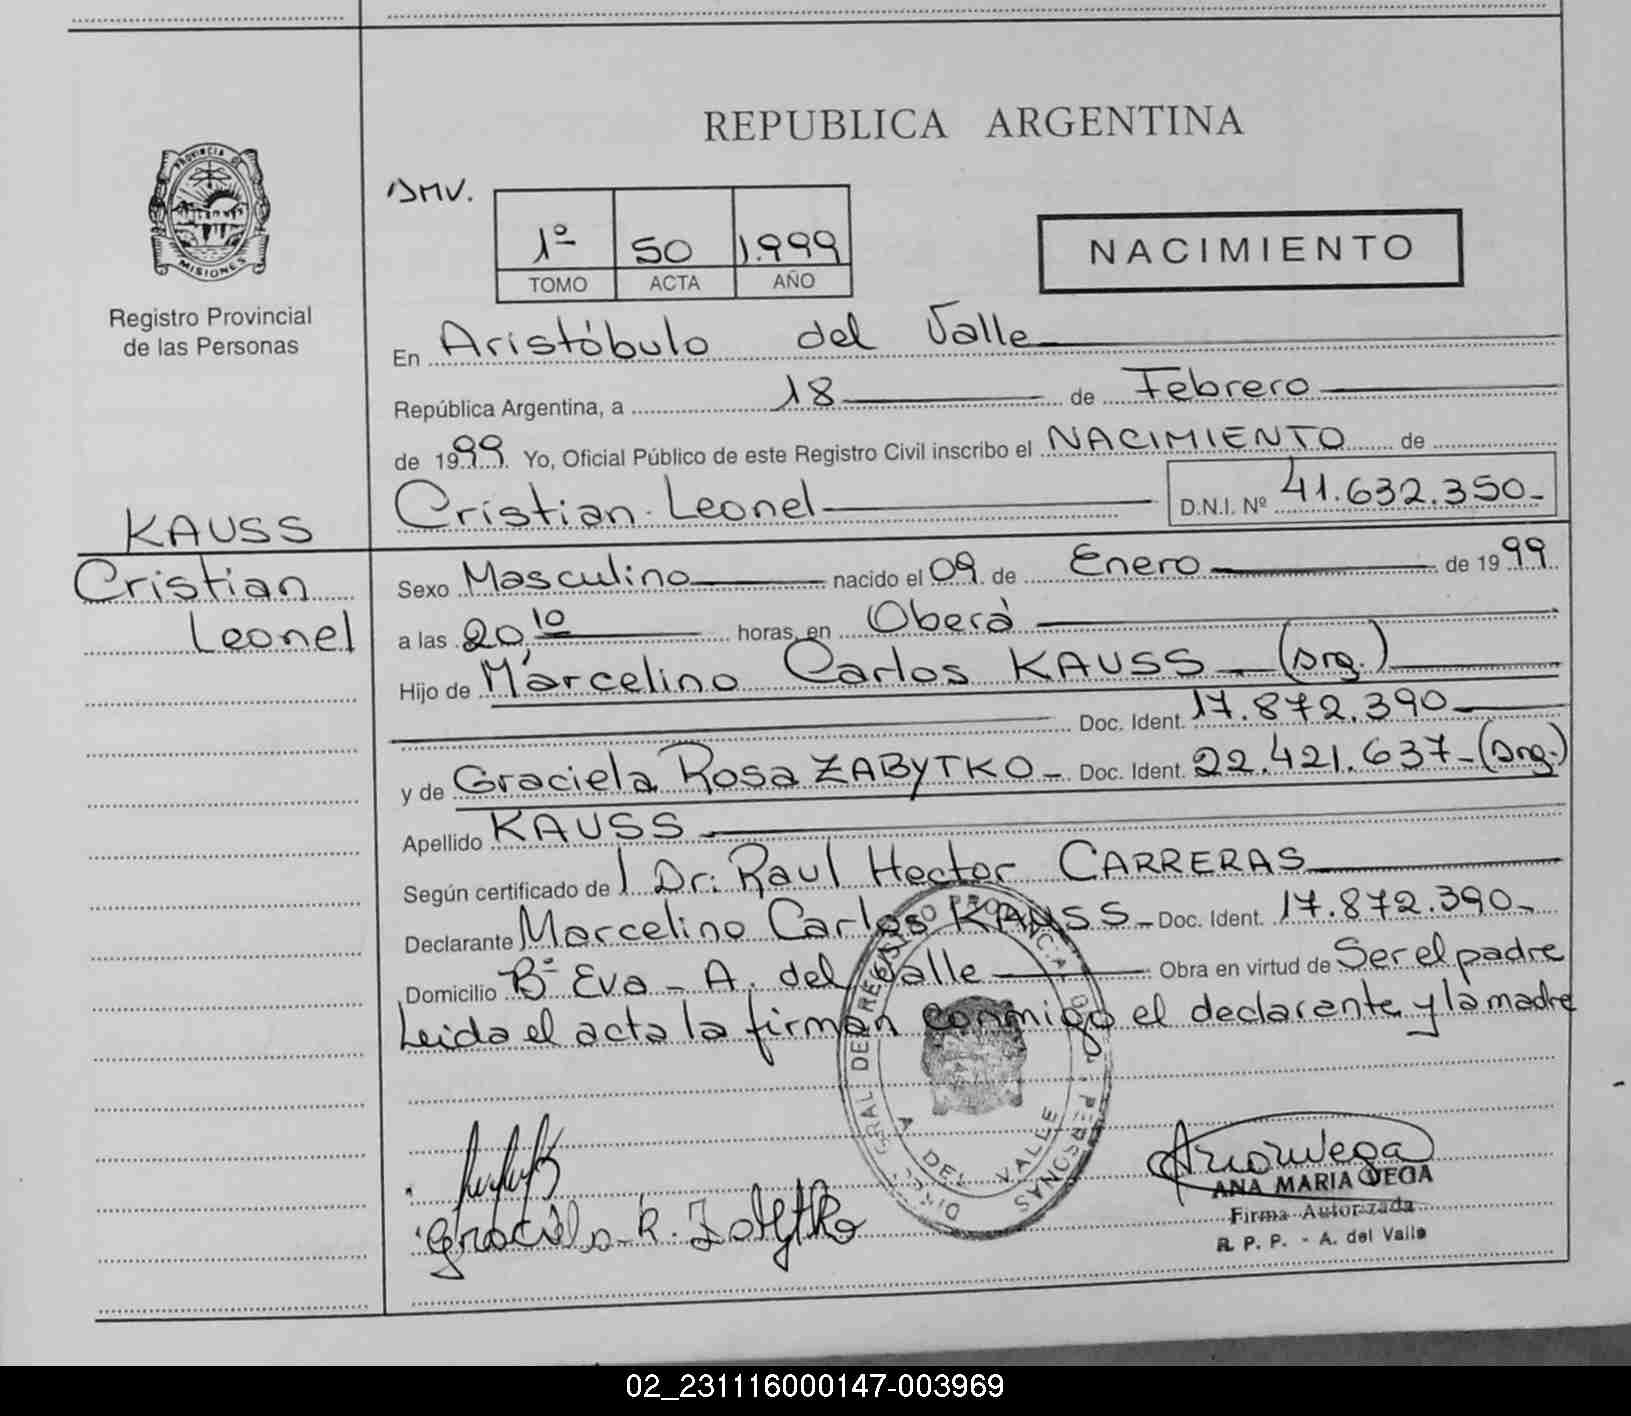 REPUBLICA ARGENTINA
PROVINCIA DE
MISIONES
Registro Provincial
de las Personas
DMV.
1º 50 1.999
TOMO ACTA AÑO
NACIMIENTO
En Aristóbulo del Valle
República Argentina, a 18 de Febrero
de 1999. Yo, Oficial Público de este Registro Civil inscribo el NACIMIENTO de
Cristian Leonel D.N.I. Nº 41.632.350-
KAUSS
Cristian
Leonel
Sexo Masculino nacido el 09 de Enero de 1999
a las 20,10 horas, en Oberá
Hijo de Marcelino Carlos KAUSS - (Arg.)
Doc. Ident. 17.872.390
y de Graciela Rosa ZABYTKO - Doc. Ident. 22.421.637-(Arg.)
Apellido KAUSS
Según certificado de l Dr. Raul Hector CARRERAS
Declarante Marcelino Carlos KAUSS - Doc. Ident. 17.872.390-
Domicilio Bº Eva - A. del Valle Obra en virtud de Ser el padre
Leida el acta la firman conmigo el declarante y la madre
DIREC. GRAL DE REGISTRO PROVINC. A DE L. PERSONAS
A DEL VALLE
Graciela R. Zabytko
ANA MARIA VEGA
Firma Autorizada
R. P. P. - A. del Valle
02_231116000147-003969